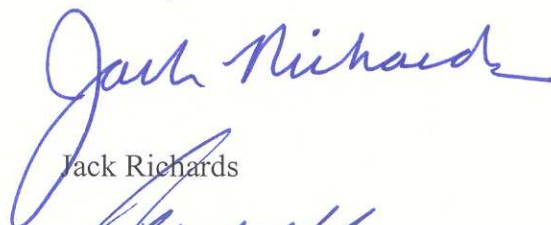 Jack Richards
Jack Richards